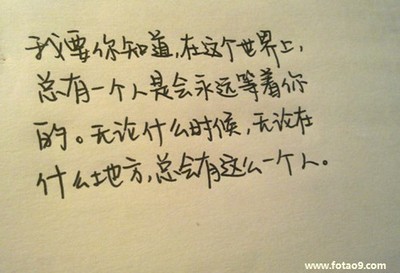 我要你知道,在这个世界上,
总有一个人是会永远等着你
的。无论什么时候,无论在
什么地方,总会有这么一个人。
www.fotao9.com